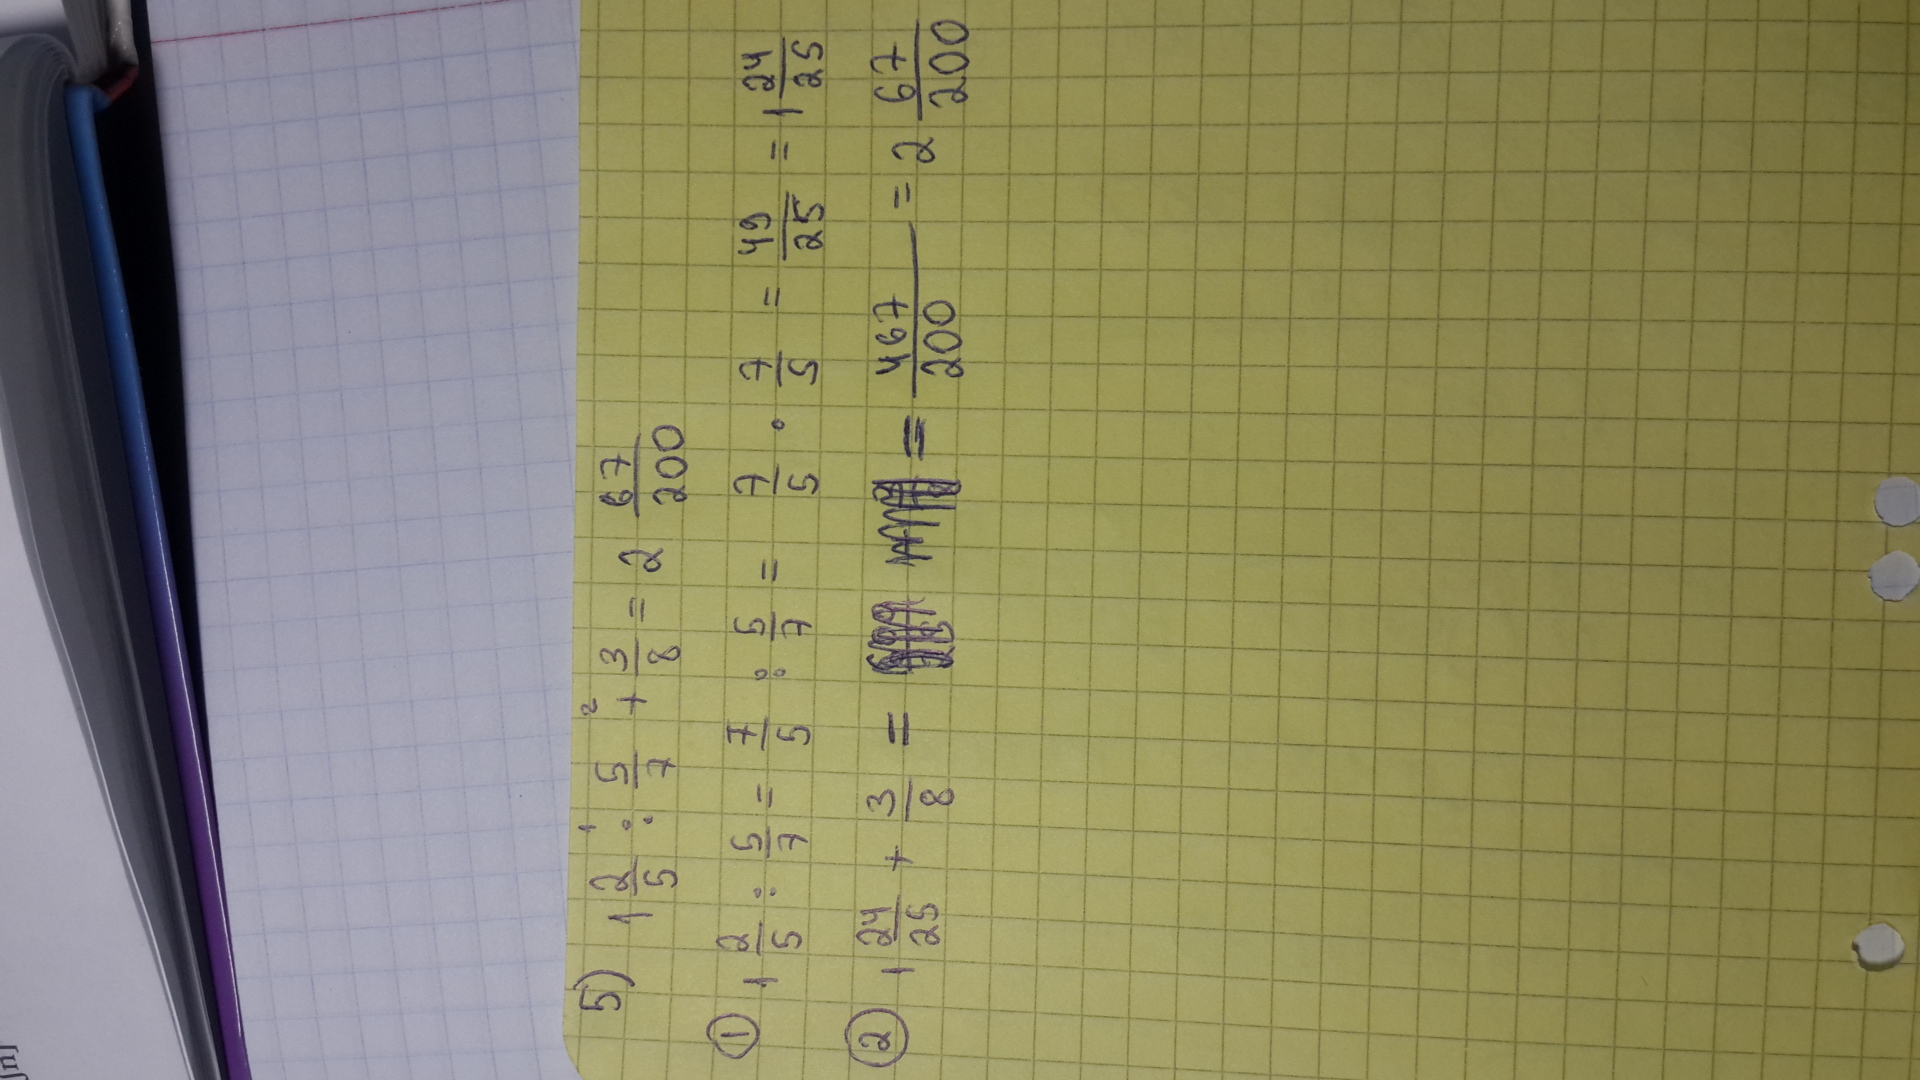 5) 1 2/5 :¹ 5/7 +² 3/8 = 2 67/200
① 1 2/5 : 5/7 = 7/5 : 5/7 = 7/5 · 7/5 = 49/25 = 1 24/25
② 1 24/25 + 3/8 = = 467/200 = 2 67/200